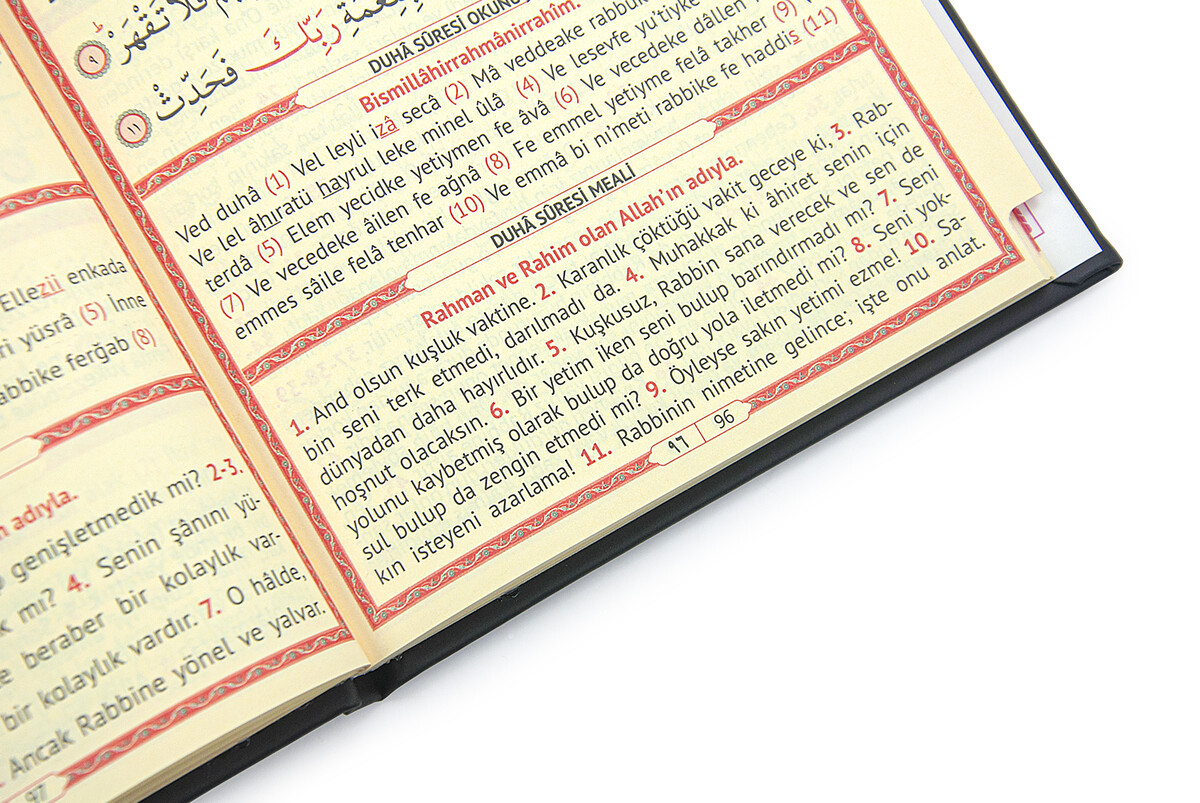 فَلَا تَقْهَرْ ٩
بِنِعْمَةِ رَبِّكَ فَحَدِّثْ ١١
DUHÂ SÛRESİ
Bismillâhirrahmânirrahîm.
Ved duhâ (1) Vel leyli izâ secâ (2) Mâ veddeake
Ve lel âhıratü hayrul leke minel ûlâ (4) Ve lesevfe yu'tiyke
terdâ (5) Elem yecidke yetiymen fe âvâ (6) Ve vecedeke dâllen
(7) Ve vecedeke âilen fe ağnâ (8) Fe emmel yetiyme felâ takher (9)
emmes sâile felâ tenhar (10) Ve emmâ bi ni'meti rabbike fe haddis (11)
DUHÂ SÛRESİ MEALİ
Rahman ve Rahim olan Allah'ın adıyla.
1. And olsun kuşluk vaktine. 2. Karanlık çöktüğü vakit geceye ki, 3. Rab-
bin seni terk etmedi, darılmadı da. 4. Muhakkak ki âhiret senin için
dünyadan daha hayırlıdır. 5. Kuşkusuz, Rabbin sana verecek ve sen de
hoşnut olacaksın. 6. Bir yetim iken seni bulup barındırmadı mı? 7. Seni
yolunu kaybetmiş olarak bulup da doğru yola iletmedi mi? 8. Seni yok-
sul bulup da zengin etmedi mi? 9. Öyleyse sakın yetimi ezme! 10. Sa-
kın isteyeni azarlama! 11. Rabbinin nimetine gelince; işte onu anlat.
٩٦ | 96
Ellezii enkada
yüsrâ (5) İnne
ferğab (8)
adıyla.
genişletmedik mi? 2-3.
mı? 4. Senin şânını yü-
beraber bir kolaylık var-
bir kolaylık vardır. 7. O hâlde,
Ancak Rabbine yönel ve yalvar.
97